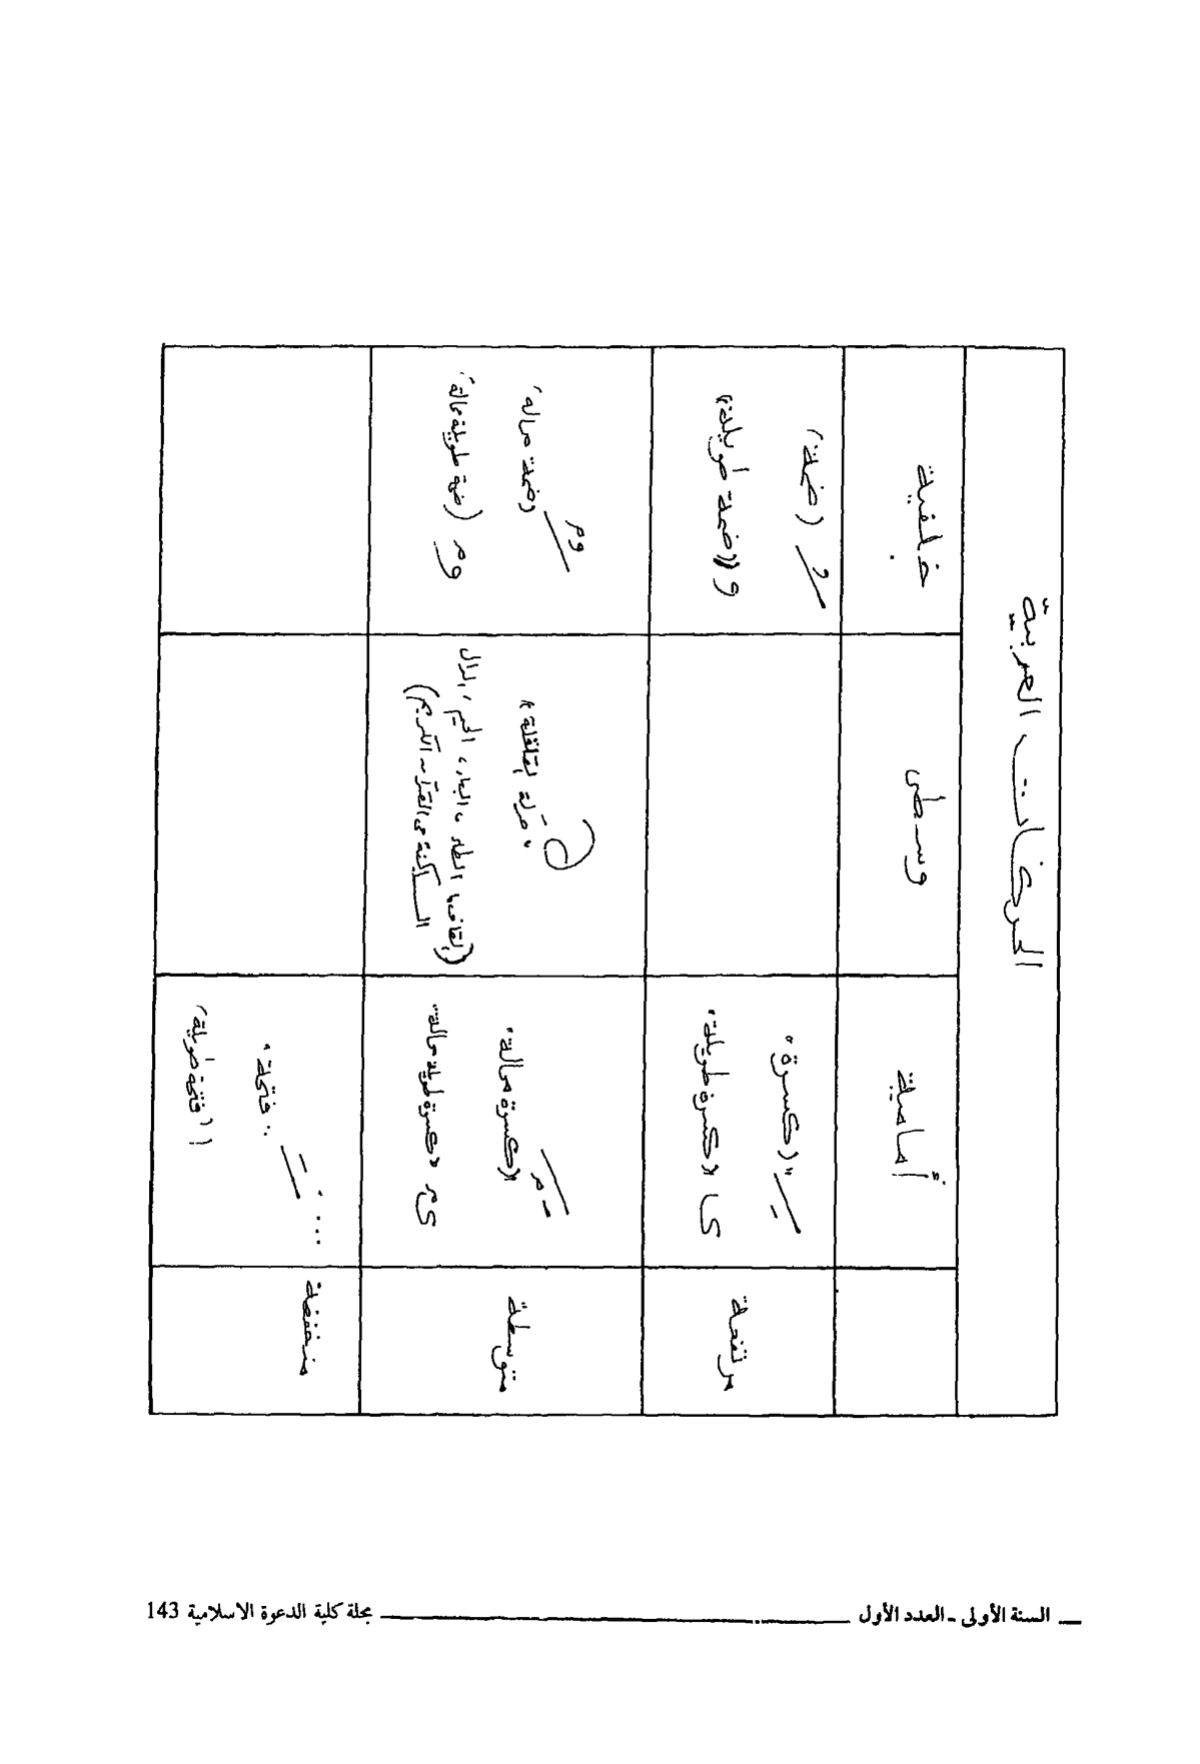 الحركات العربية
أمامية
وسطى
خلفية
مرتفعة
ـِ «(كسرة)»
ى «كسرة طويلة»
ـُ (ضمة)
و «ضمة طويلة»
متوسطة
«كسرة ممالة»
ىم «كسرة طويلة ممالة»
«حركة القلقلة»
(القاف، الطاء، الباء، الجيم، الدال
الساكنة في القرآن الكريم)
وم
«ضمة ممالة»
وم (ضمة طويلة ممالة)
منخفضة
ـَ «فتحة»
ا (فتحة طويلة)
السنة الأولى - العدد الأول
مجلة كلية الدعوة الاسلامية 143